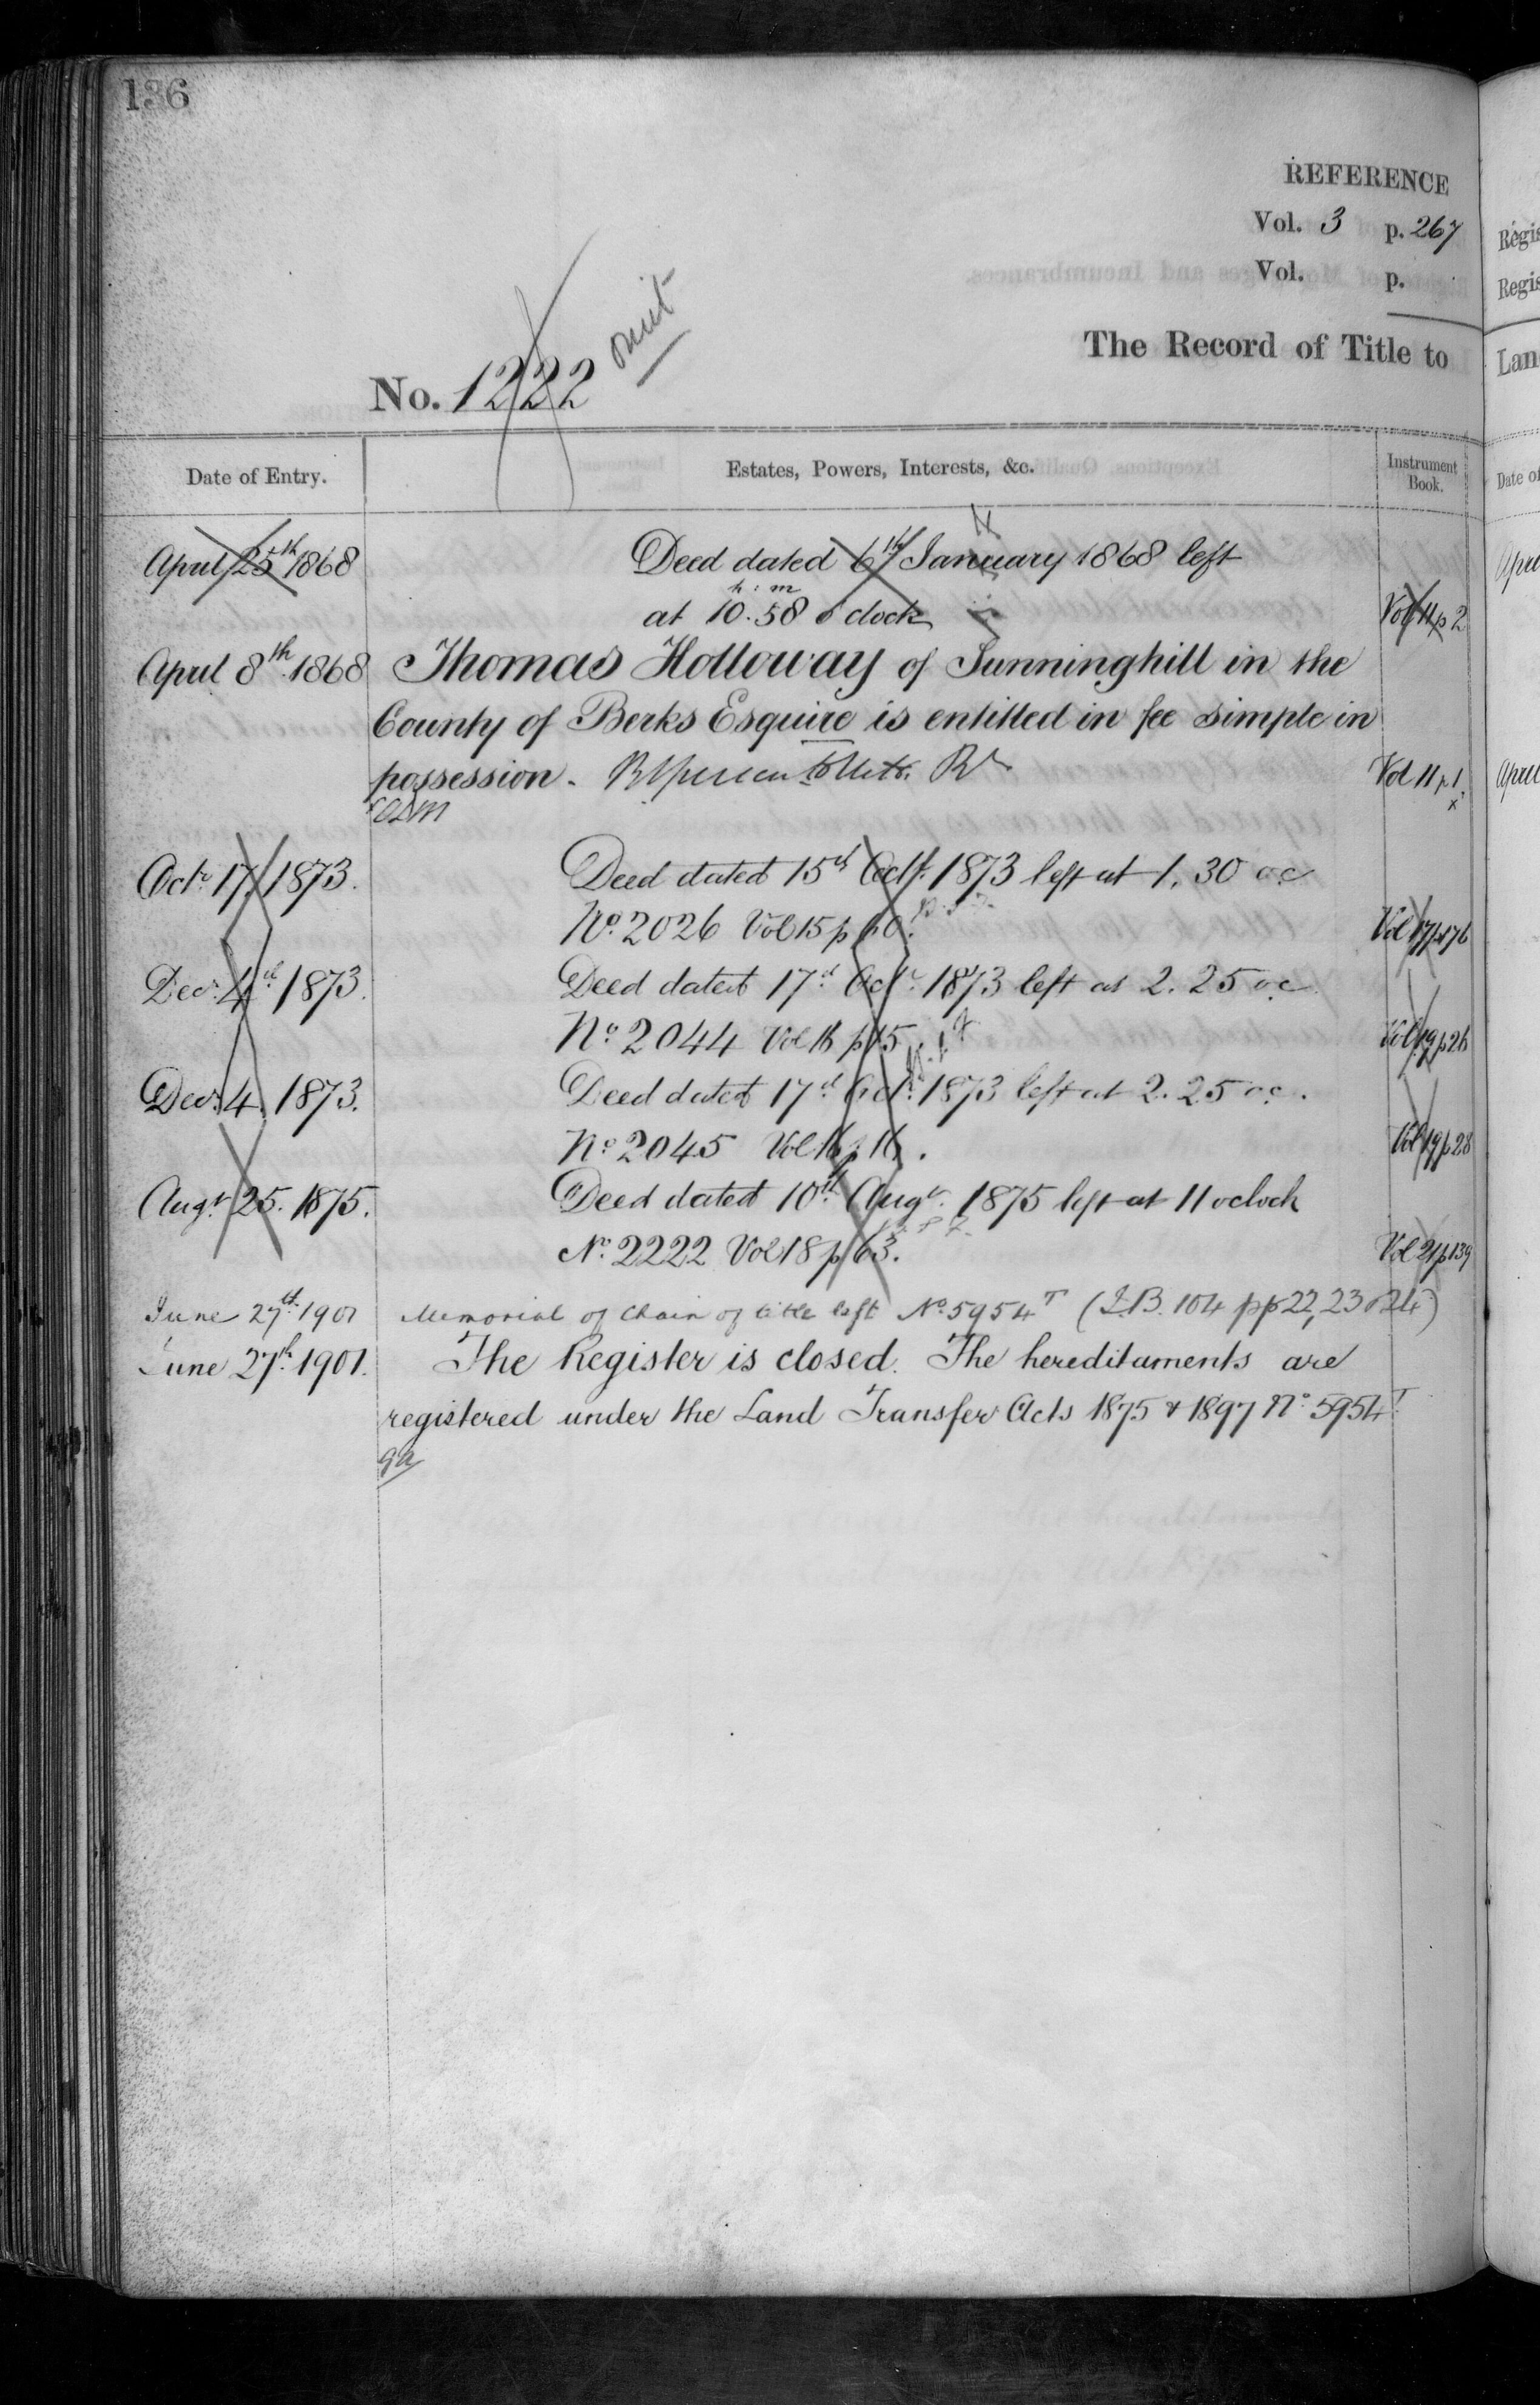 136
REFERENCE
Vol. 3 p. 267
Vol. p.
The Record of Title to
No. 1222 omit
Date of Entry. Estates, Powers, Interests, &c. Instrument Book.
April 25th 1868 Deed dated 6th January 1868 left
h : m
at 10.58 o'clock Vol 11 p 2
April 8th 1868 Thomas Holloway of Sunninghill in the
County of Berks Esquire is entitled in fee simple in
possession. Vol 11 p 1
Octr 17. 1873. Deed dated 15th Octr 1873 left at 1.30 oc
No. 2026 Vol 15 p 60. Vol 17 p 176
Decr 4th 1873. Deed dated 17th Octr 1873 left at 2.25 oc.
No 2044 Vol 16 p 15. Vol 19 p 26
Decr 4. 1873. Deed dated 17th Octr 1873 left at 2.25 oc.
No 2045 Vol 16 p 16. Vol 19 p 28
Augt 25. 1875. Deed dated 10th Augt. 1875 left at 11 oclock
No. 2222 Vol 18 p 63. Vol 21 p 139
June 27th 1901 Memorial of Chain of title left No. 5954T (I.B. 104 pp 22, 23 & 24)
June 27th 1901. The Register is closed. The hereditaments are
registered under the Land Transfer Acts 1875 & 1897 No. 5954T.
Regis
Regis
Lan
Date of
April
April